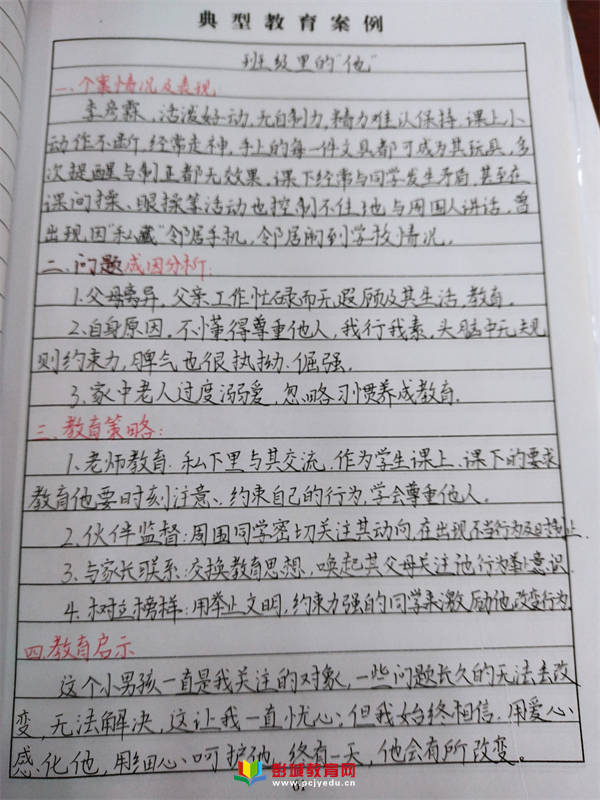 典型教育案例
班级里的"他"
一、个案情况及表现
李彦霖,活泼好动,无自制力,精力难以保持,课上小
动作不断,经常走神,手上的每一件文具都可成为其玩具,多
次提醒与制止都无效果,课下经常与同学发生矛盾,甚至在
课间操、眼操等活动也控制不住地与周围人讲话,曾
出现因"私藏"邻居手机,邻居闹到学校情况。
二、问题成因分析:
1.父母离异,父亲工作忙碌而无暇顾及其生活、教育。
2.自身原因,不懂得尊重他人,我行我素,头脑中无规
则约束力,脾气也很执拗、倔强。
3.家中老人过度溺爱,忽略习惯养成教育.
三、教育策略:
1、老师教育:私下里与其交流,作为学生课上、课下的要求
教育他要时刻注意、约束自己的行为,学会尊重他人。
2.伙伴监督:周围同学密切关注其动向,在出现不当行为及时制止.
3.与家长联系:交换教育思想,唤起其父母关注他行为举止意识.
4.树立榜样:用举止文明,约束力强的同学来激励他改变行为.
四.教育启示
这个小男孩一直是我关注的对象,一些问题长久的无法去改
变,无法解决,这让我一直忧心;但我始终相信,用爱心
感化他,用细心呵护他,终有一天,他会有所改变。
彭城教育网
www.pcjyedu.cn